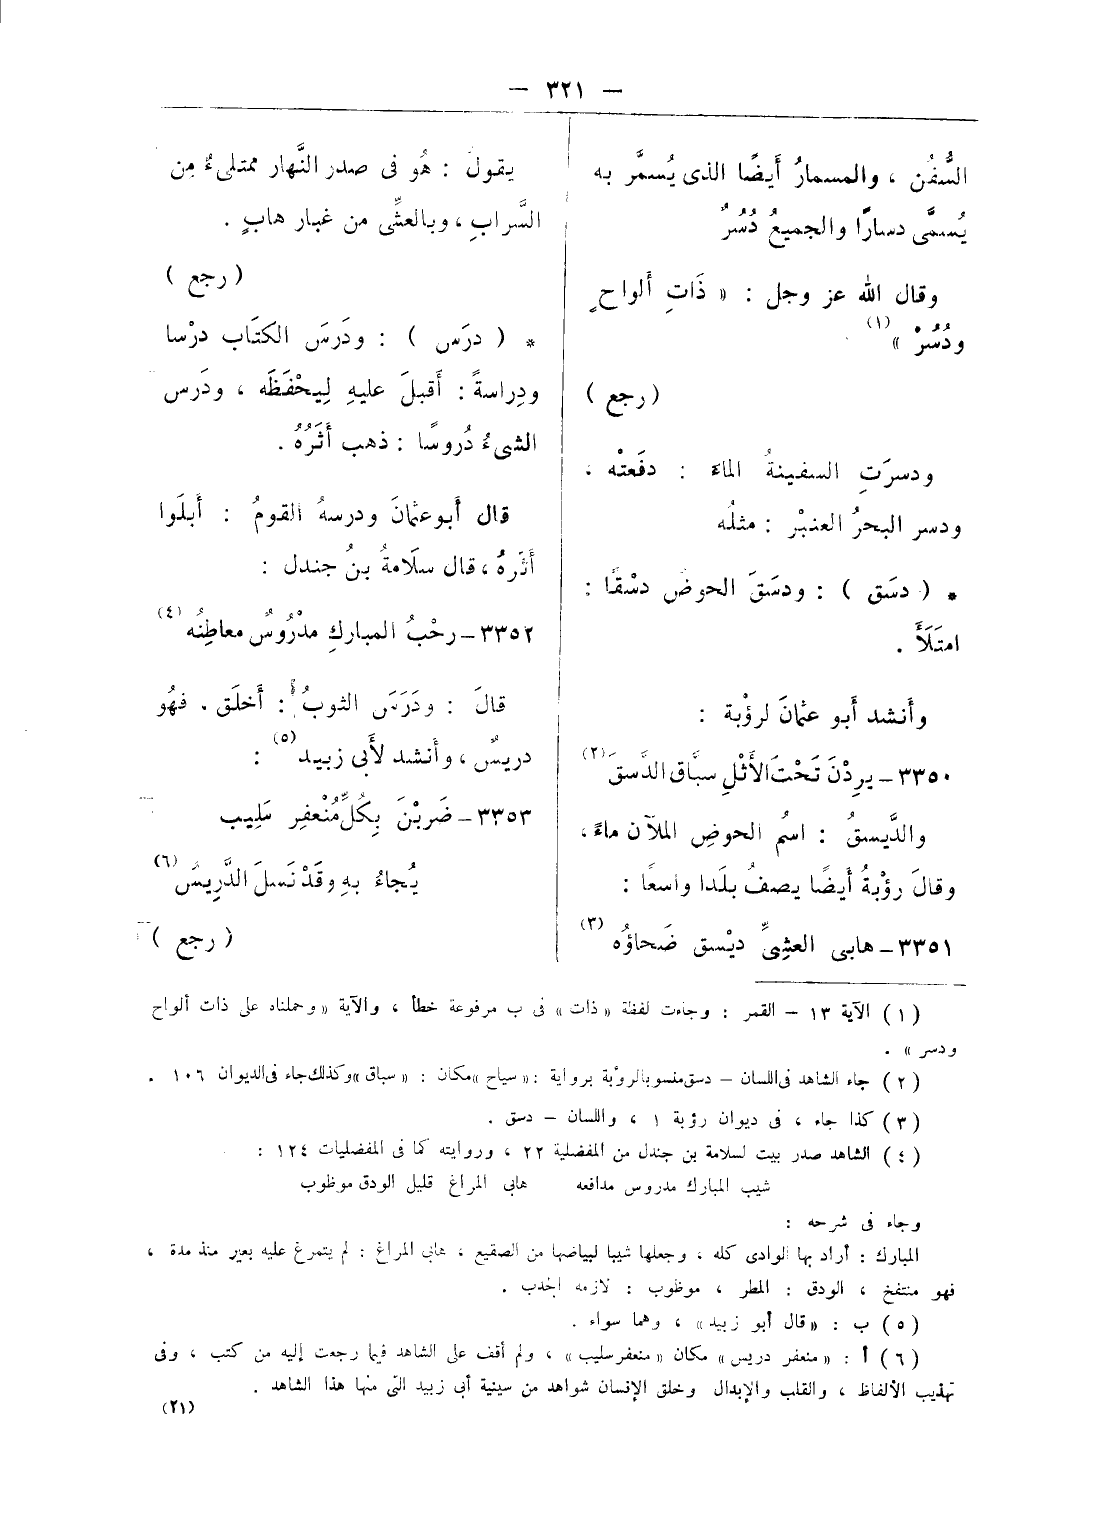 — ٣٢١ —
السُّفُن ، والمسمارُ أيضًا الذى يُسمَّر به
يُسمَّى دسارًا والجميعُ دُسُرٌ
وقال الله عز وجل : « ذَاتِ ألواحٍ
ودُسُرْ » (١)
( رجع )
ودسرَتِ السفينةُ الماءَ : دفَعتْه ،
ودسر البحرُ العنبْر : مثلُه
* ( دسَق ) : ودسَقَ الحوضُ دسْقًا :
امتَلَأَ .
وأنشد أبو عثمانَ لرؤبة :
٣٣٥٠ – يرِدْنَ تَحْتَ الأَثْلِ سبَّاق الدَّسقَ (٢)
والدَّيسقُ : اسمُ الحوضِ الملآن ماءً ،
وقالَ رؤبةُ أيضًا يصفُ بلَدا واسعًا :
٣٣٥١ – هابى العشِىِّ ديْسق ضَحاؤُه (٣)
يقولَ : هُو فى صدر النَّهار ممتلىءٌ مِن
السَّرابِ ، وبالعشِّى من غبار هابٍ .
( رجع )
* ( درَس ) : ودَرسَ الكتَاب درْسا
ودِراسةً : أقبلَ عليهِ لِيحْفَظَه ، ودَرس
الشىءُ دُروسًا : ذهب أثَرُهُ .
قال أبو عثمانَ ودرسهُ القومُ : أبلَوا
أثَرهُ ، قال سلَامةُ بنُ جندل :
٣٣٥٢ – رحْبُ المباركِ مدْرُوسٌ معاطِنُه (٤)
قالَ : ودَرَسَ الثوبُ : أَخلَق . فهُو
دريسٌ ، وأنشد لأَبى زبيد (٥) :
٣٣٥٣ – ضَربْنَ بِكُلِّ مُنْعفِر سَلِيب
يُجاءُ بهِ وقَدْ نَسلَ الدَّرِيسُ (٦)
( رجع )
(١) الآية ١٣ – القمر : وجاءت لفظة « ذات » فى ب مرفوعة خطأ ، والآية « وحملناه على ذات ألواح
ودسر » .
(٢) جاء الشاهد فى اللسان – دسق منسوبا لرؤبة برواية : « سياح » مكان : « سباق » وكذلك جاء فى الديوان ١٠٦ .
(٣) كذا جاء ، فى ديوان رؤبة ١ ، واللسان – دسق .
(٤) الشاهد صدر بيت لسلامة بن جندل من المفضلية ٢٢ ، وروايته كما فى المفضليات ١٢٤ :
شيب المبارك مدروس مدافعه هابى المراغ قليل الودق موظوب
وجاء فى شرحه :
المبارك : أراد بها الوادى كله ، وجعلها شيبا لبياضها من الصقيع ، هابى المراغ : لم يتمرغ عليه بعير منذ مدة ،
فهو منتفخ ، الودق : المطر ، موظوب : لازمه الجدب .
(٥) ب : « قال أبو زبيد » ، وهما سواء .
(٦) أ : « منعفر دريس » مكان « منعفر سليب » ، ولم أقف على الشاهد فيما رجعت إليه من كتب ، وفى
تهذيب الألفاظ ، والقلب والإبدال وخلق الإنسان شواهد من سينية أبى زبيد التى منها هذا الشاهد .
(٢١)